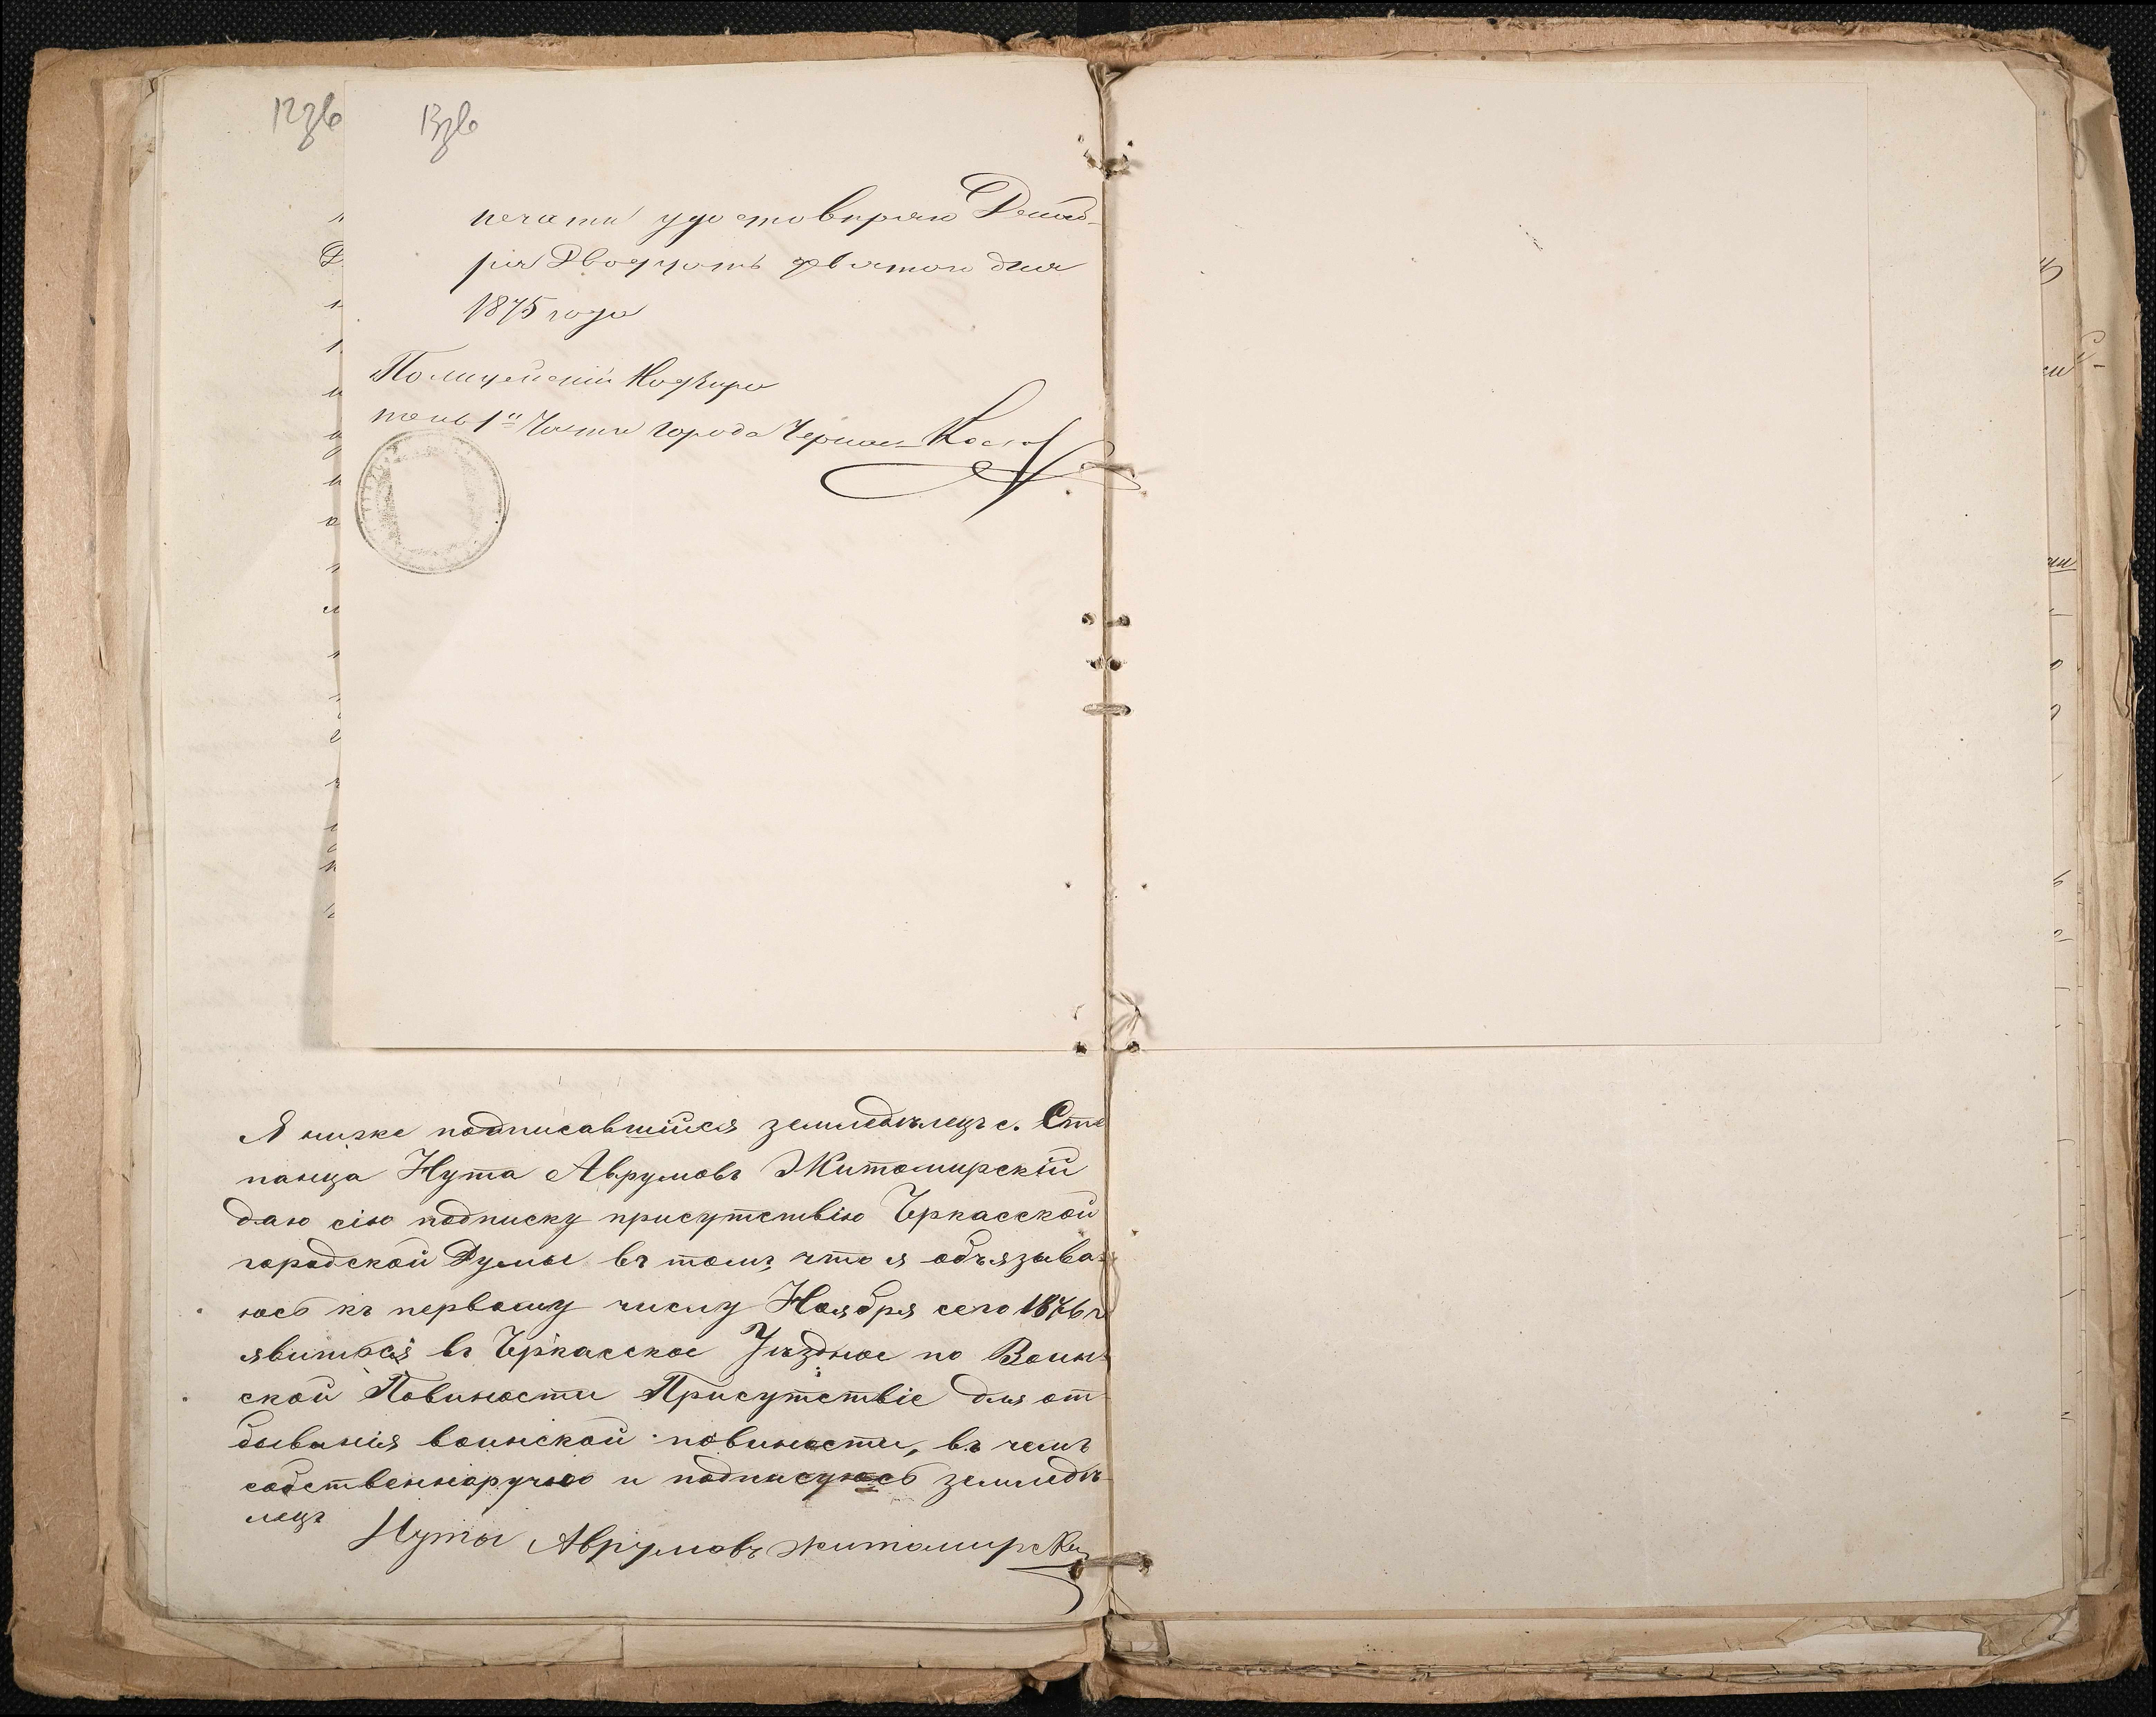 12зв
13зв
печати удостоверяю Декаб-
ря Двадцать девятого дня
1875 года
Полицейскій Надзира
тель 1й Части города Черкас
Я ниже подписавшійся земледѣлецъ с. Сте
панца Нута Аврумовъ Житомирскій
даю сію подписку присутствію Черкасской
городской Думы въ томъ, что я объязыва-
юсь къ первому числу Ноября сего 1876 г
явиться въ Черкасское Уѣздное по Воин-
ской Повиности Присутствіе для от-
быванія воинской повиности, въ чемъ
собственноручно и подписуюсь земледѣ-
лецъ
Нута Аврумовъ житомирски